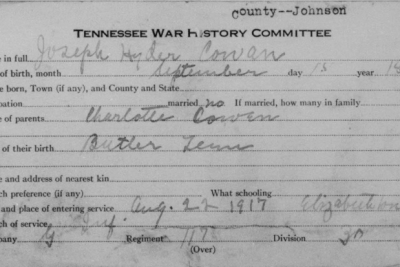 County--Johnson
TENNESSEE WAR HISTORY COMMITTEE
e in full Joseph Hyder Cowan
of birth, month September day 15 year 18
e born, Town (if any), and County and State
pation married, no If married, how many in family
e of parents Charlotte Cowen
of their birth Butler Tenn
e and address of nearest kin
ch preference (if any) What schooling
and place of entering service Aug. 22 1917 Elizabethton
ch of service Inf.
pany G Regiment 117 Division 30
(Over)